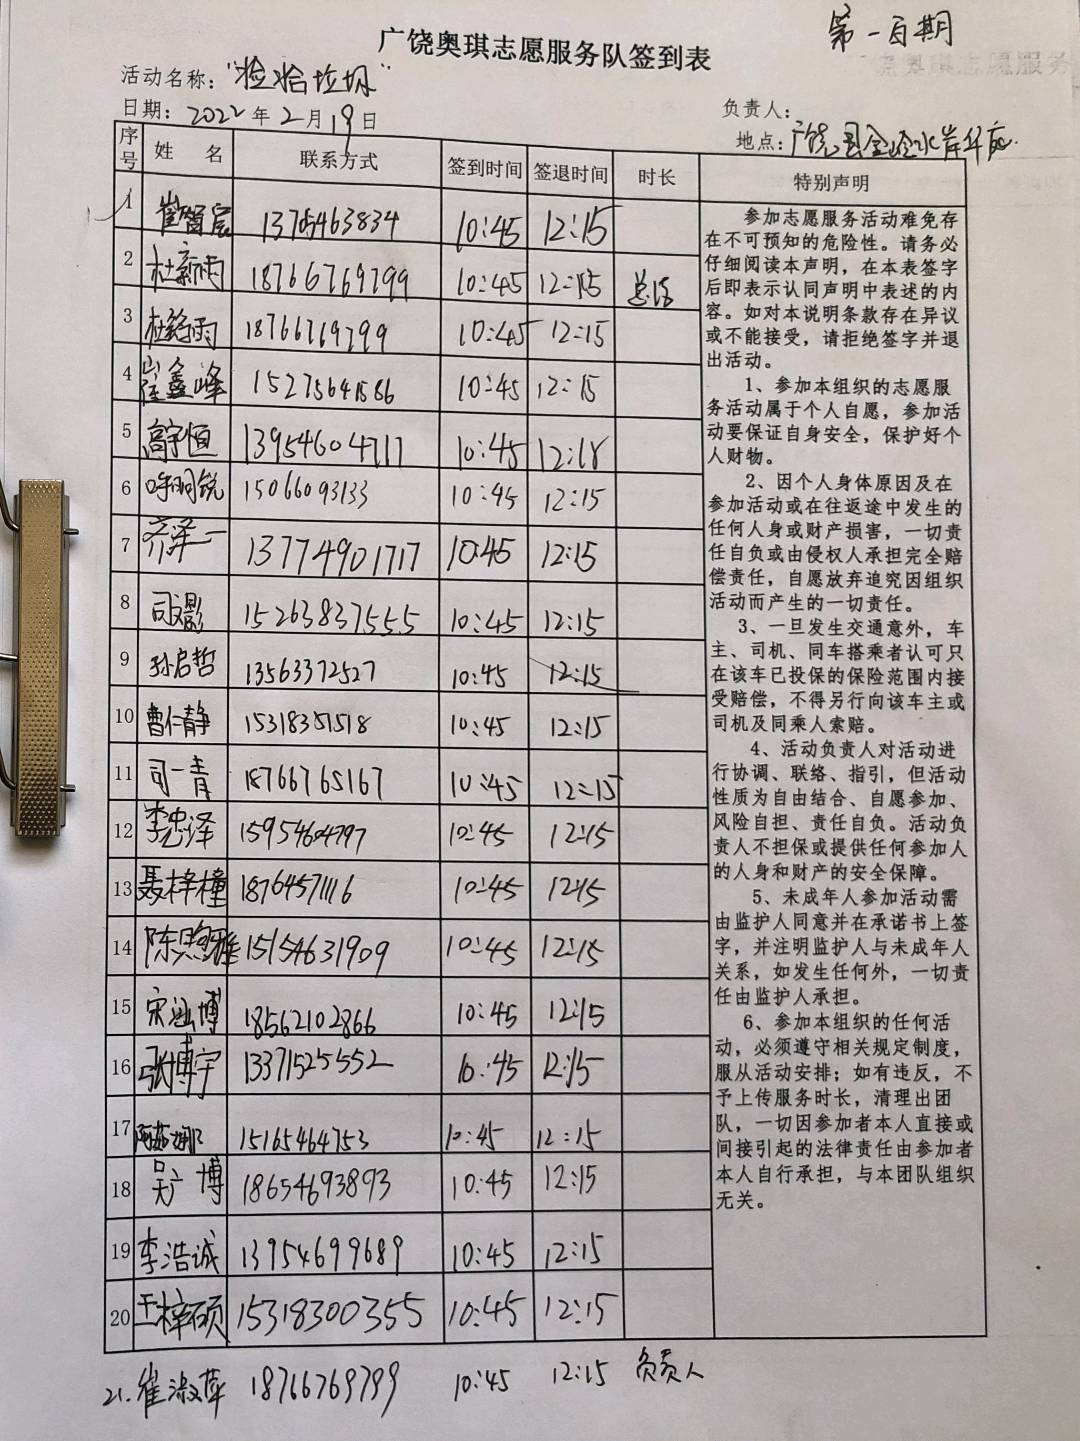 第一百期
广饶奥琪志愿服务队签到表
活动名称：“捡拾垃圾”
日期：2022年2月19日
负责人：
地点：广饶县
序号 姓 名 联系方式 签到时间 签退时间 时长 特别声明
1 崔智宸 13705463834 10:45 12:15
2 杜新雨 18766769799 10:45 12:15 总结
3 杜铭雨 18766769799 10:45 12:15
4 崔鑫峰 15275641586 10:45 12:15
5 高宇恒 13954604717 10:45 12:18
6 15066093133 10:45 12:15
7 齐泽一 13774901717 10:45 12:15
8 司文影 15263837555 10:45 12:15
9 孙启哲 13563372527 10:45 12:15
10 曹仁静 15318351518 10:45 12:15
11 司一青 18766765167 10:45 12:15
12 李忠泽 15954604797 10:45 12:15
13 聂梓橦 18764571116 10:45 12:15
14 陈煦雅 15154631909 10:45 12:15
15 宋汕博 18562102866 10:45 12:15
16 张博宇 13371525552 10:45 12:15
17 阿茹娜 15165464753 10:45 12:15
18 吴广博 18654693893 10:45 12:15
19 李浩诚 13954699689 10:45 12:15
20 王梓硕 15318300355 10:45 12:15
21. 崔淑萍 18766769799 10:45 12:15 负责人
参加志愿服务活动难免存
在不可预知的危险性。请务必
仔细阅读本声明，在本表签字
后即表示认同声明中表述的内
容。如对本说明条款存在异议
或不能接受，请拒绝签字并退
出活动。
1、参加本组织的志愿服
务活动属于个人自愿，参加活
动要保证自身安全，保护好个
人财物。
2、因个人身体原因及在
参加活动或在往返途中发生的
任何人身或财产损害，一切责
任自负或由侵权人承担完全赔
偿责任，自愿放弃追究因组织
活动而产生的一切责任。
3、一旦发生交通意外，车
主、司机、同车搭乘者认可只
在该车已投保的保险范围内接
受赔偿，不得另行向该车主或
司机及同乘人索赔。
4、活动负责人对活动进
行协调、联络、指引，但活动
性质为自由结合、自愿参加、
风险自担、责任自负。活动负
责人不担保或提供任何参加人
的人身和财产的安全保障。
5、未成年人参加活动需
由监护人同意并在承诺书上签
字，并注明监护人与未成年人
关系，如发生任何外，一切责
任由监护人承担。
6、参加本组织的任何活
动，必须遵守相关规定制度，
服从活动安排；如有违反，不
予上传服务时长，清理出团
队，一切因参加者本人直接或
间接引起的法律责任由参加者
本人自行承担，与本团队组织
无关。